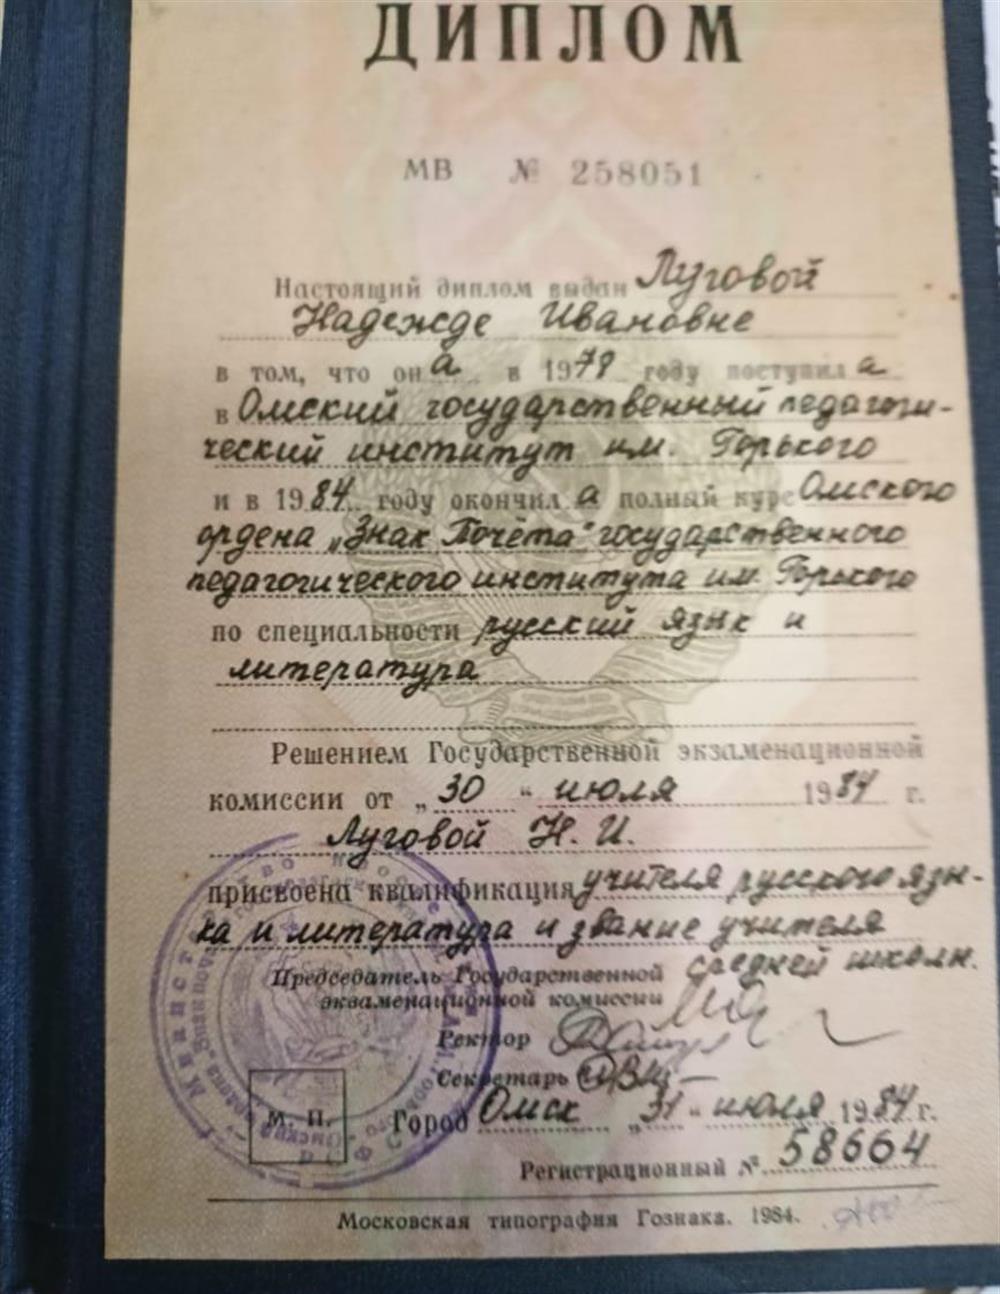 ДИПЛОМ
МВ № 258051
Настоящий диплом выдан Луговой
Надежде Ивановне
в том, что она в 1978 году поступила
в Омский государственный педагоги-
ческий институт им. Горького
и в 1984 году окончила полный курс Омского
ордена „Знак Почёта" государственного
педагогического института им. Горького
по специальности русский язык и
литература
Решением Государственной экзаменационной
комиссии от „30" июля 1984 г.
Луговой Н. И.
присвоена квалификация учителя русского язы-
ка и литература и звание учителя
средней школы.
Председатель Государственной
экзаменационной комиссии
Ректор
Секретарь
М. П. Город Омск „31" июля 1984 г.
Регистрационный № 58664
Московская типография Гознака. 1984.